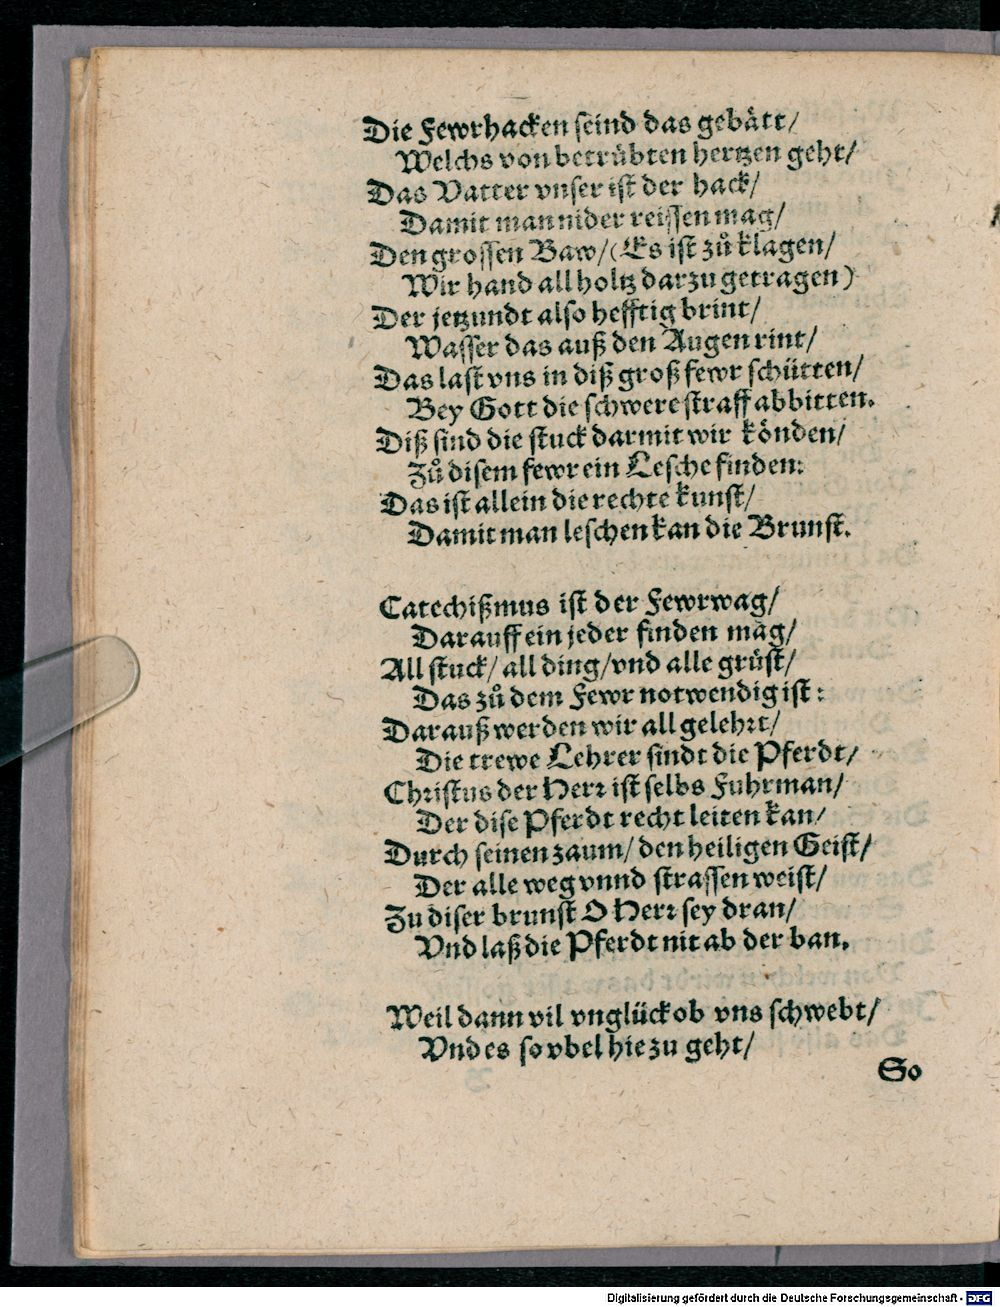 Die Fewrhacken seind das gebätt/
Welchs von betrübten hertzen geht/
Das Vatter vnser ist der hack/
Damit man nider reissen mag/
Den grossen Baw/(Es ist zů klagen/
Wir hand all holtz darzu getragen)
Der jetzundt also hefftig brint/
Wasser das auß den Augen rint/
Das last vns in diß groß fewr schütten/
Bey Gott die schwere straff abbitten.
Diß sind die stuck darmit wir könden/
Zů disem fewr ein Lesche finden:
Das ist allein die rechte kunst/
Damit man leschen kan die Brunst.
Catechißmus ist der Fewrwag/
Darauff ein jeder finden mag/
All stuck/ all ding/vnd alle grüst/
Das zů dem Fewr notwendig ist:
Darauß werden wir all gelehrt/
Die trewe Lehrer sindt die Pferdt/
Christus der Herr ist selbs Fuhrman/
Der dise Pferdt recht leiten kan/
Durch seinen zaum/ den heiligen Geist/
Der alle weg vnnd strassen weist/
Zu diser brunst O Herr sey dran/
Vnd laß die Pferdt nit ab der ban.
Weil dann vil vnglück ob vns schwebt/
Vnd es so vbel hie zu geht/
So
Digitalisierung gefördert durch die Deutsche Forschungsgemeinschaft - DFG